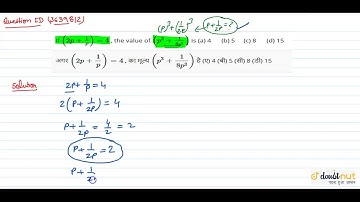 Question ID (3639812)
(p)³+(1/2p)³ ← p+1/2p=?
If (2p + 1/p) = 4, the value of (p³ + 1/8p³) is (a) 4 (b) 5 (c) 8 (d) 15
अगर (2p + 1/p) = 4, का मूल्य (p³ + 1/8p³) है (ए) 4 (बी) 5 (सी) 8 (डी) 15
Solution
2p+1/p=4
2(p+1/2p)=4
p+1/2p=4/2=2
p+1/2p=2
p+1/2
doubtnut